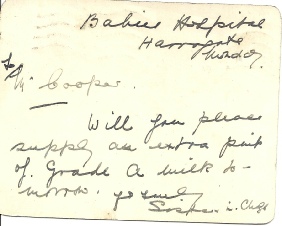 Babies Hospital
Harrogate
Monday.
To Mr Cooper.
Will you please
supply an extra pint
of Grade A milk to-
morrow.
Sister i. Chge